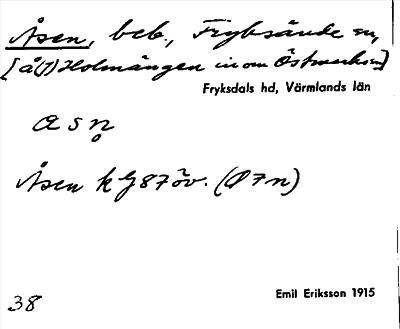 Åsen, beb., Fryksände sn,
[å(?) Holmången inom Östmarks sn]
Fryksdals hd, Värmlands län
a s n̥
Åsen kG87öv. (Ø7n)
Emil Eriksson 1915
38